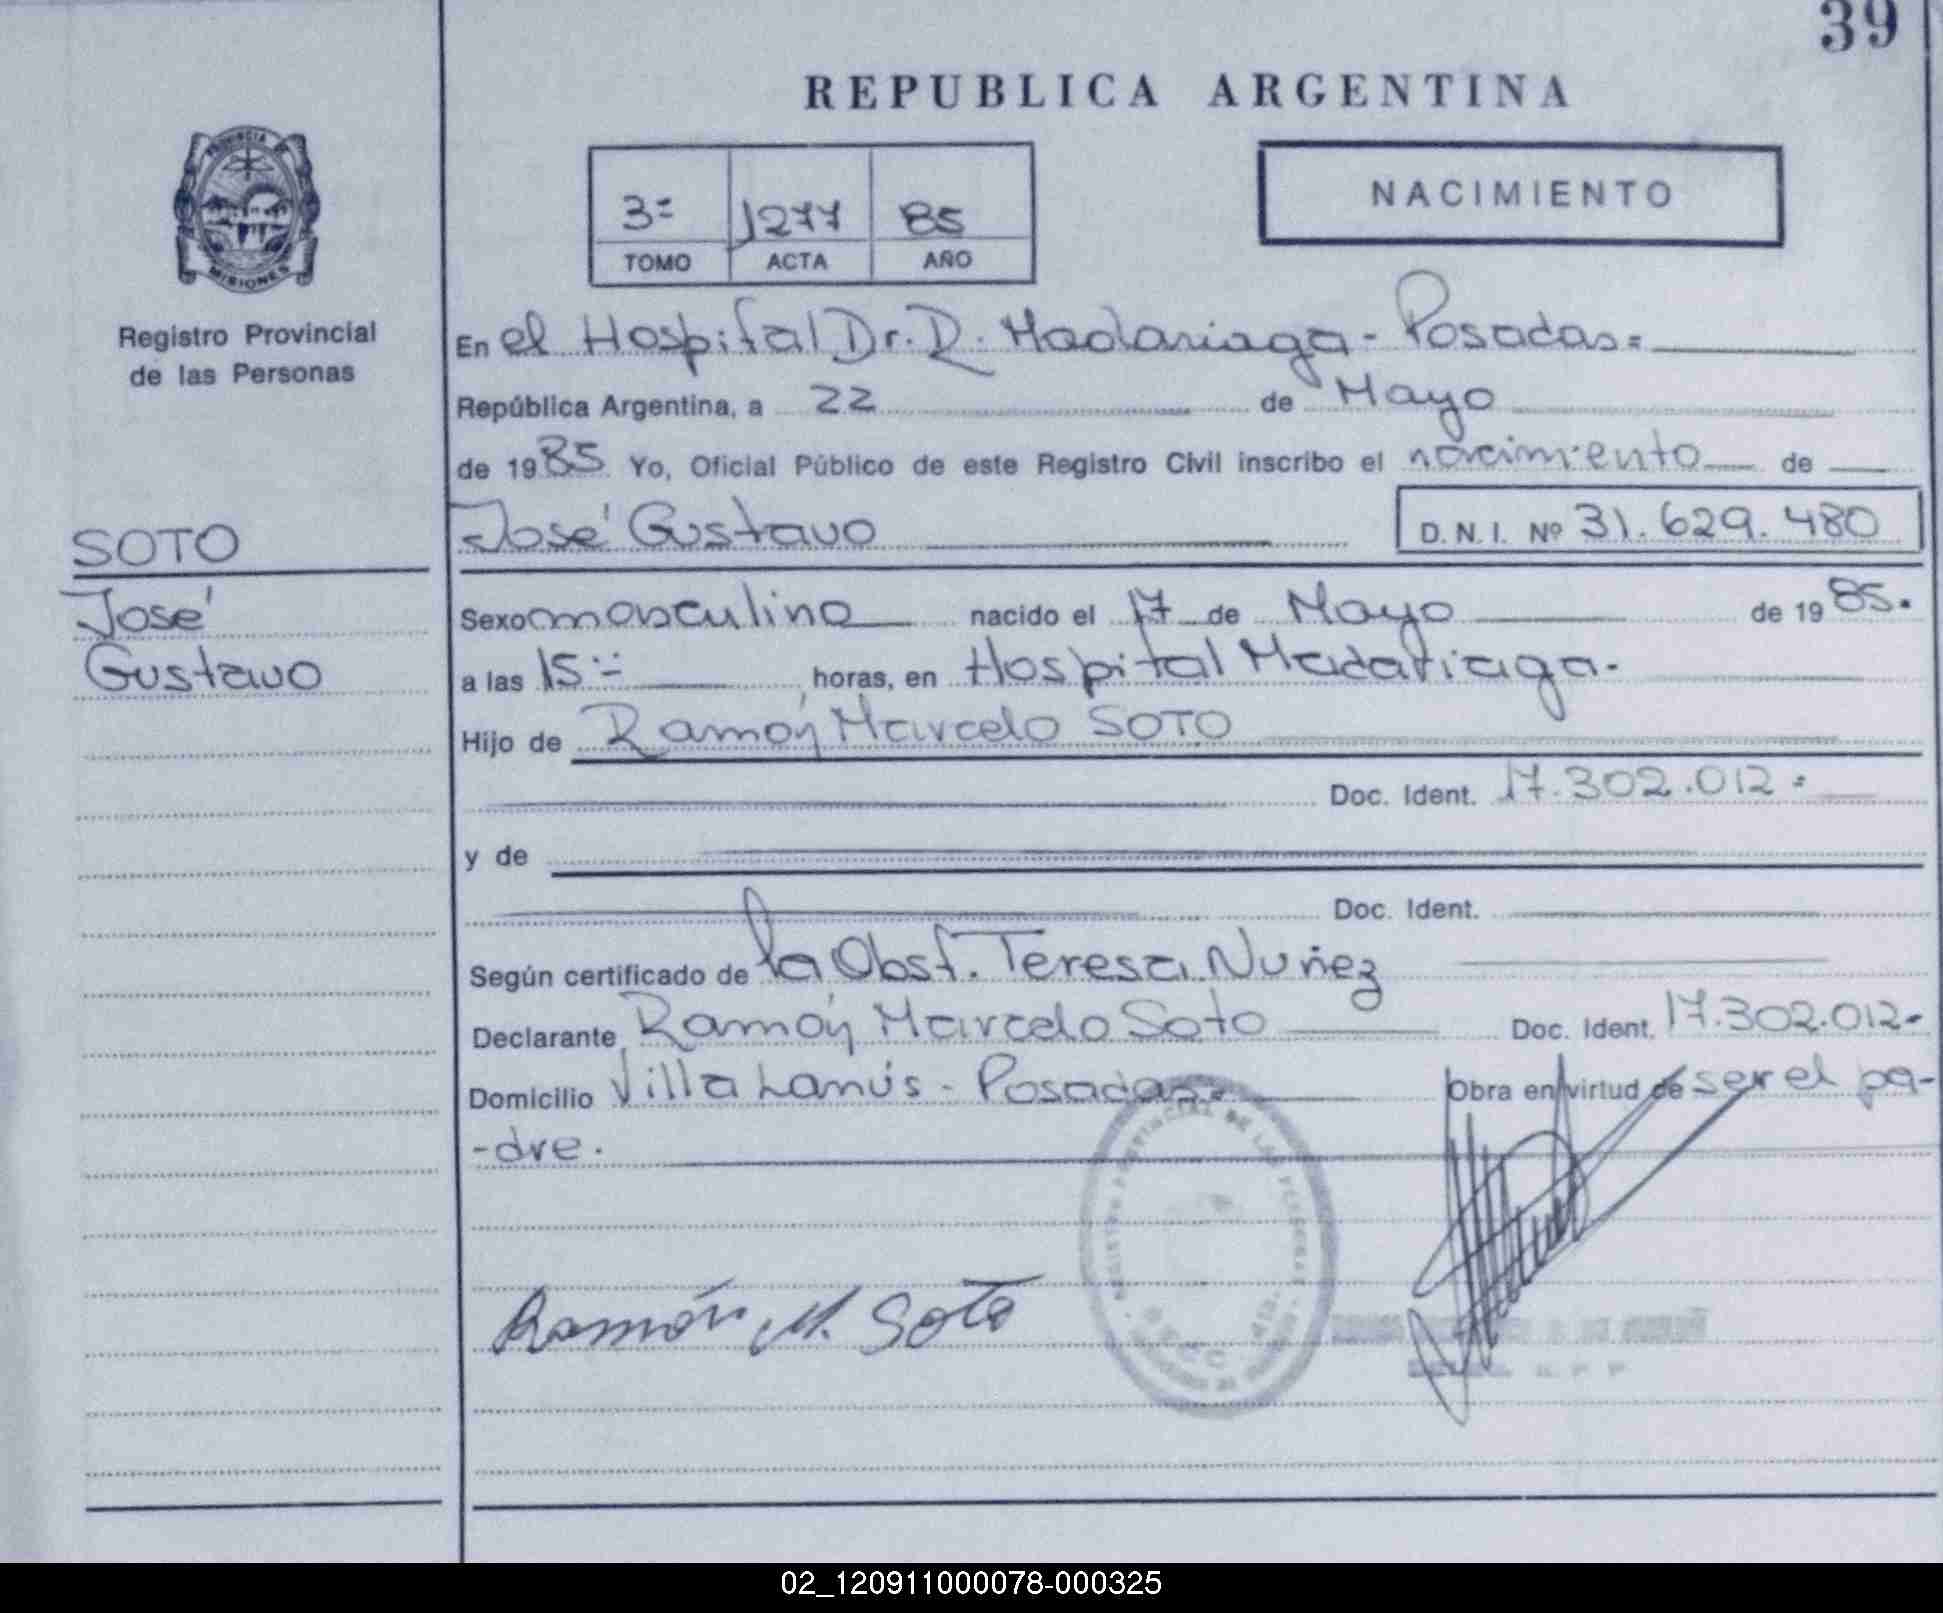 39
REPUBLICA ARGENTINA
PROVINCIA DE
MISIONES
Registro Provincial
de las Personas
3º 1277 85
TOMO ACTA AÑO
NACIMIENTO
En el Hospital Dr. R. Madariaga - Posadas=
República Argentina, a 22 de Mayo
de 1985 Yo, Oficial Público de este Registro Civil inscribo el nacimiento de
José Gustavo D. N. I. Nº 31.629.480
SOTO
José
Gustavo
Sexo masculino nacido el 17 de Mayo de 1985.
a las 15:- horas, en Hospital Madariaga-
Hijo de Ramón Marcelo SOTO
Doc. Ident. 17.302.012=
y de
Doc. Ident.
Según certificado de la Obst. Teresa Nuñez
Declarante Ramón Marcelo Soto Doc. Ident. 17.302.012-
Domicilio Villa Lanús - Posadas= Obra en virtud de ser el pa-
-dre.
Ramón M. Soto
02_120911000078-000325